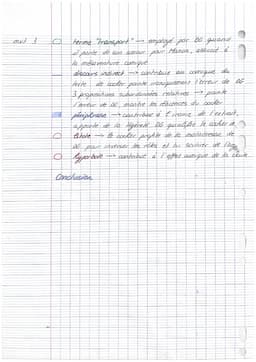 mvt 3
terme "transport" → employé par DG quand
il parle de son amour pour Manon, associé à
la mésaventure comique
discours indirect → contribue au comique du
texte → le cocher pointe ironiquement l'erreur de DG
3 propositions subordonnées relatives → pointe
l'erreur de DG, montre les réticences du cocher
périphrase → contribue à l'ironie de l'extrait,
apporte de la légèreté DG qualifie le cocher de
→ le cocher profite de la maladresse de
DG pour inverser les rôles et lui soutirer de l'
hyperbole → contribue à l'effet comique de la chute
Conclusion